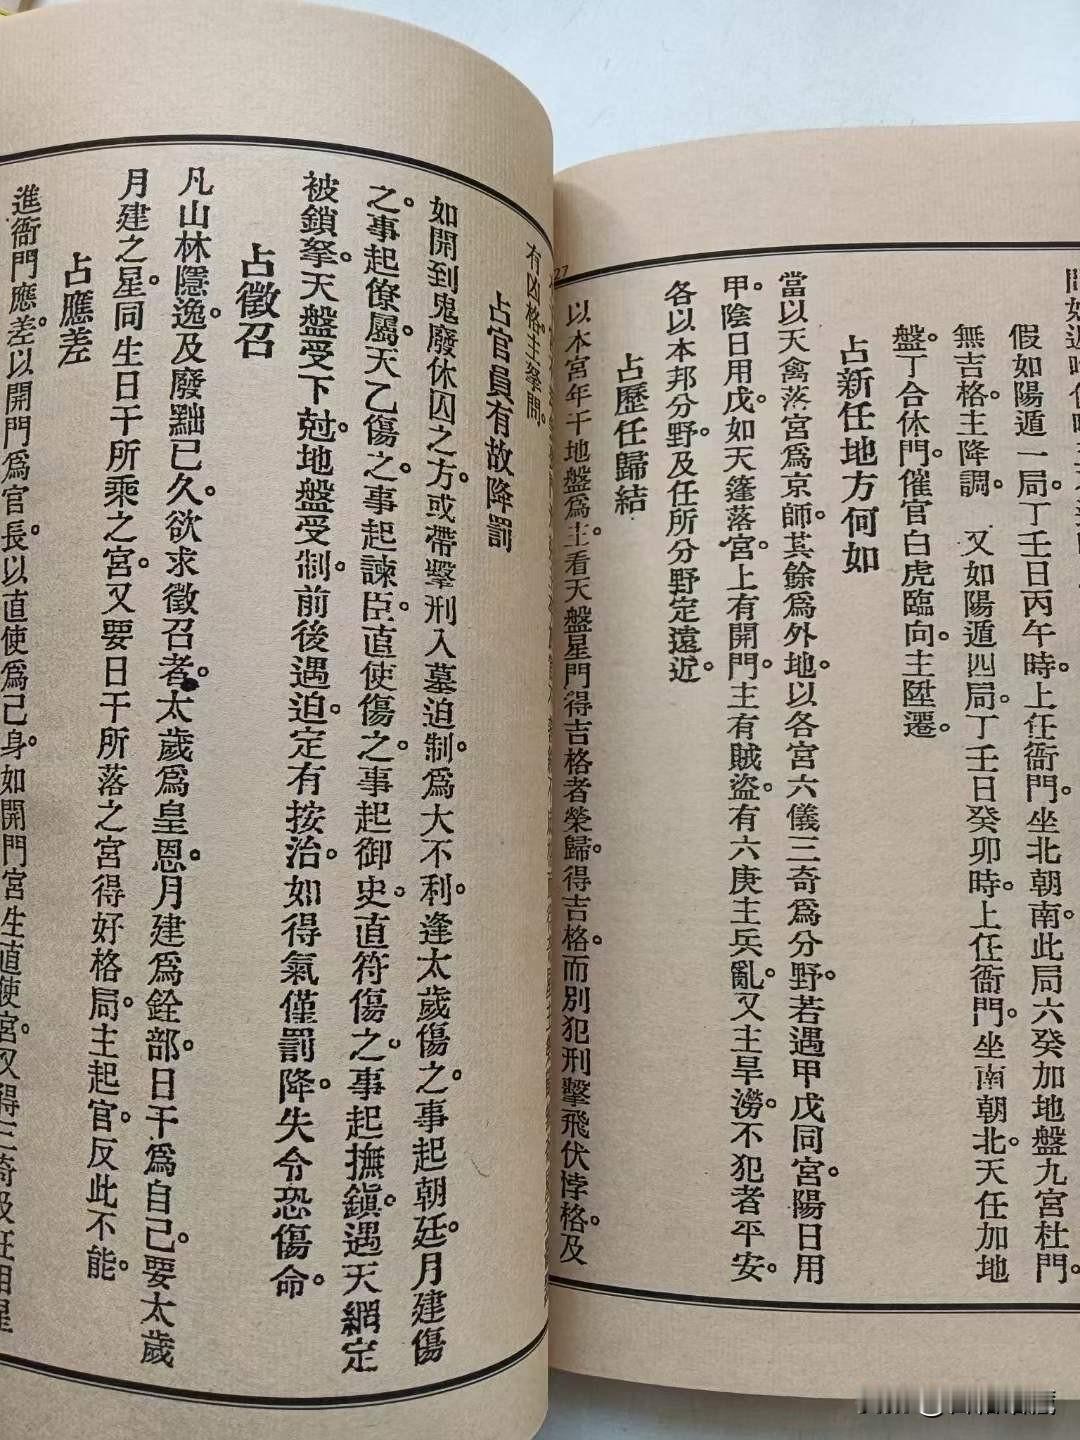 假如陽遁一局。丁壬日丙午時。上任衙門。坐北朝南。此局六癸加地盤九宮杜門。
無吉格。主降調。　又如陽遁四局。丁壬日癸卯時。上任衙門。坐南朝北。天任加地
盤。丁合休門。催官白虎臨向。主陞遷。
占新任地方何如
當以天禽落宮爲京師。其餘爲外地。以各宮六儀三奇爲分野。若遇甲戊同宮。陽日用
甲。陰日用戊。如天篷落宮。上有開門。主有賊盜。有六庚主兵亂。又主旱澇。不犯者平安。
各以本邦分野。及任所分野定遠近。
占歷任歸結
以本宮年干地盤爲主。看天盤星門得吉格者榮歸。得吉格。而別犯刑擊飛伏悖格。及
27
有凶格。主拏問。
占官員有故降罰
如開到鬼廢休囚之方。或帶擊刑入墓迫制。爲大不利。逢太歲傷之。事起朝廷。月建傷
之。事起僚屬。天乙傷之。事起諫臣。直使傷之。事起御史。直符傷之。事起撫鎭。遇天網定
被鎖拏。天盤受下尅。地盤受制。前後遇迫。定有按治。如得氣僅罰降。失令恐傷命。
占徵召
凡山林隱逸。及廢黜已久。欲求徵召者。太歲爲皇恩。月建爲銓部。日干爲自己。要太歲
月建之星。同生日干所乘之宮。又要日干所落之宮得好格局。主起官。反此不能。
占應差
進衙門應差。以開門爲官長。以直使爲己身。如開門宮生直使宮。又得三奇及旺相星